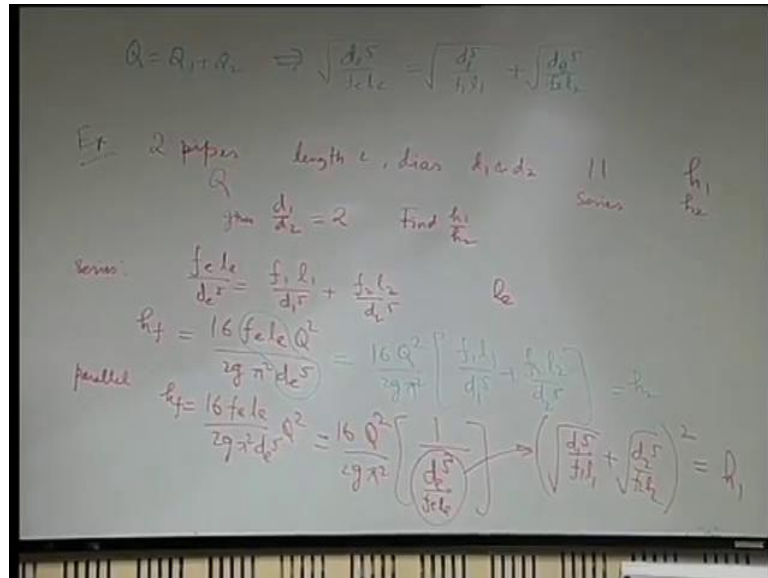 Q = Q₁ + Q₂ ⇒ √(dₑ⁵/fₑlₑ) = √(d₁⁵/f₁l₁) + √(d₂⁵/f₂l₂)
Ex. 2 pipes length L, dias d₁ & d₂ || h₁
Q series h₂
given d₁/d₂ = 2 Find h₁/h₂
series: fₑlₑ/dₑ⁵ = f₁l₁/d₁⁵ + f₂l₂/d₂⁵ lₑ
h_f = 16 fₑlₑ Q²/2g π² dₑ⁵ = 16 Q²/2g π² [f₁l₁/d₁⁵ + f₂l₂/d₂⁵] = h₂
parallel h_f = 16 fₑlₑ/2g π² dₑ⁵ Q² = 16 Q²/2g π² [1/(dₑ⁵/fₑlₑ)] → (√(d₁⁵/f₁l₁) + √(d₂⁵/f₂l₂))² = h₁